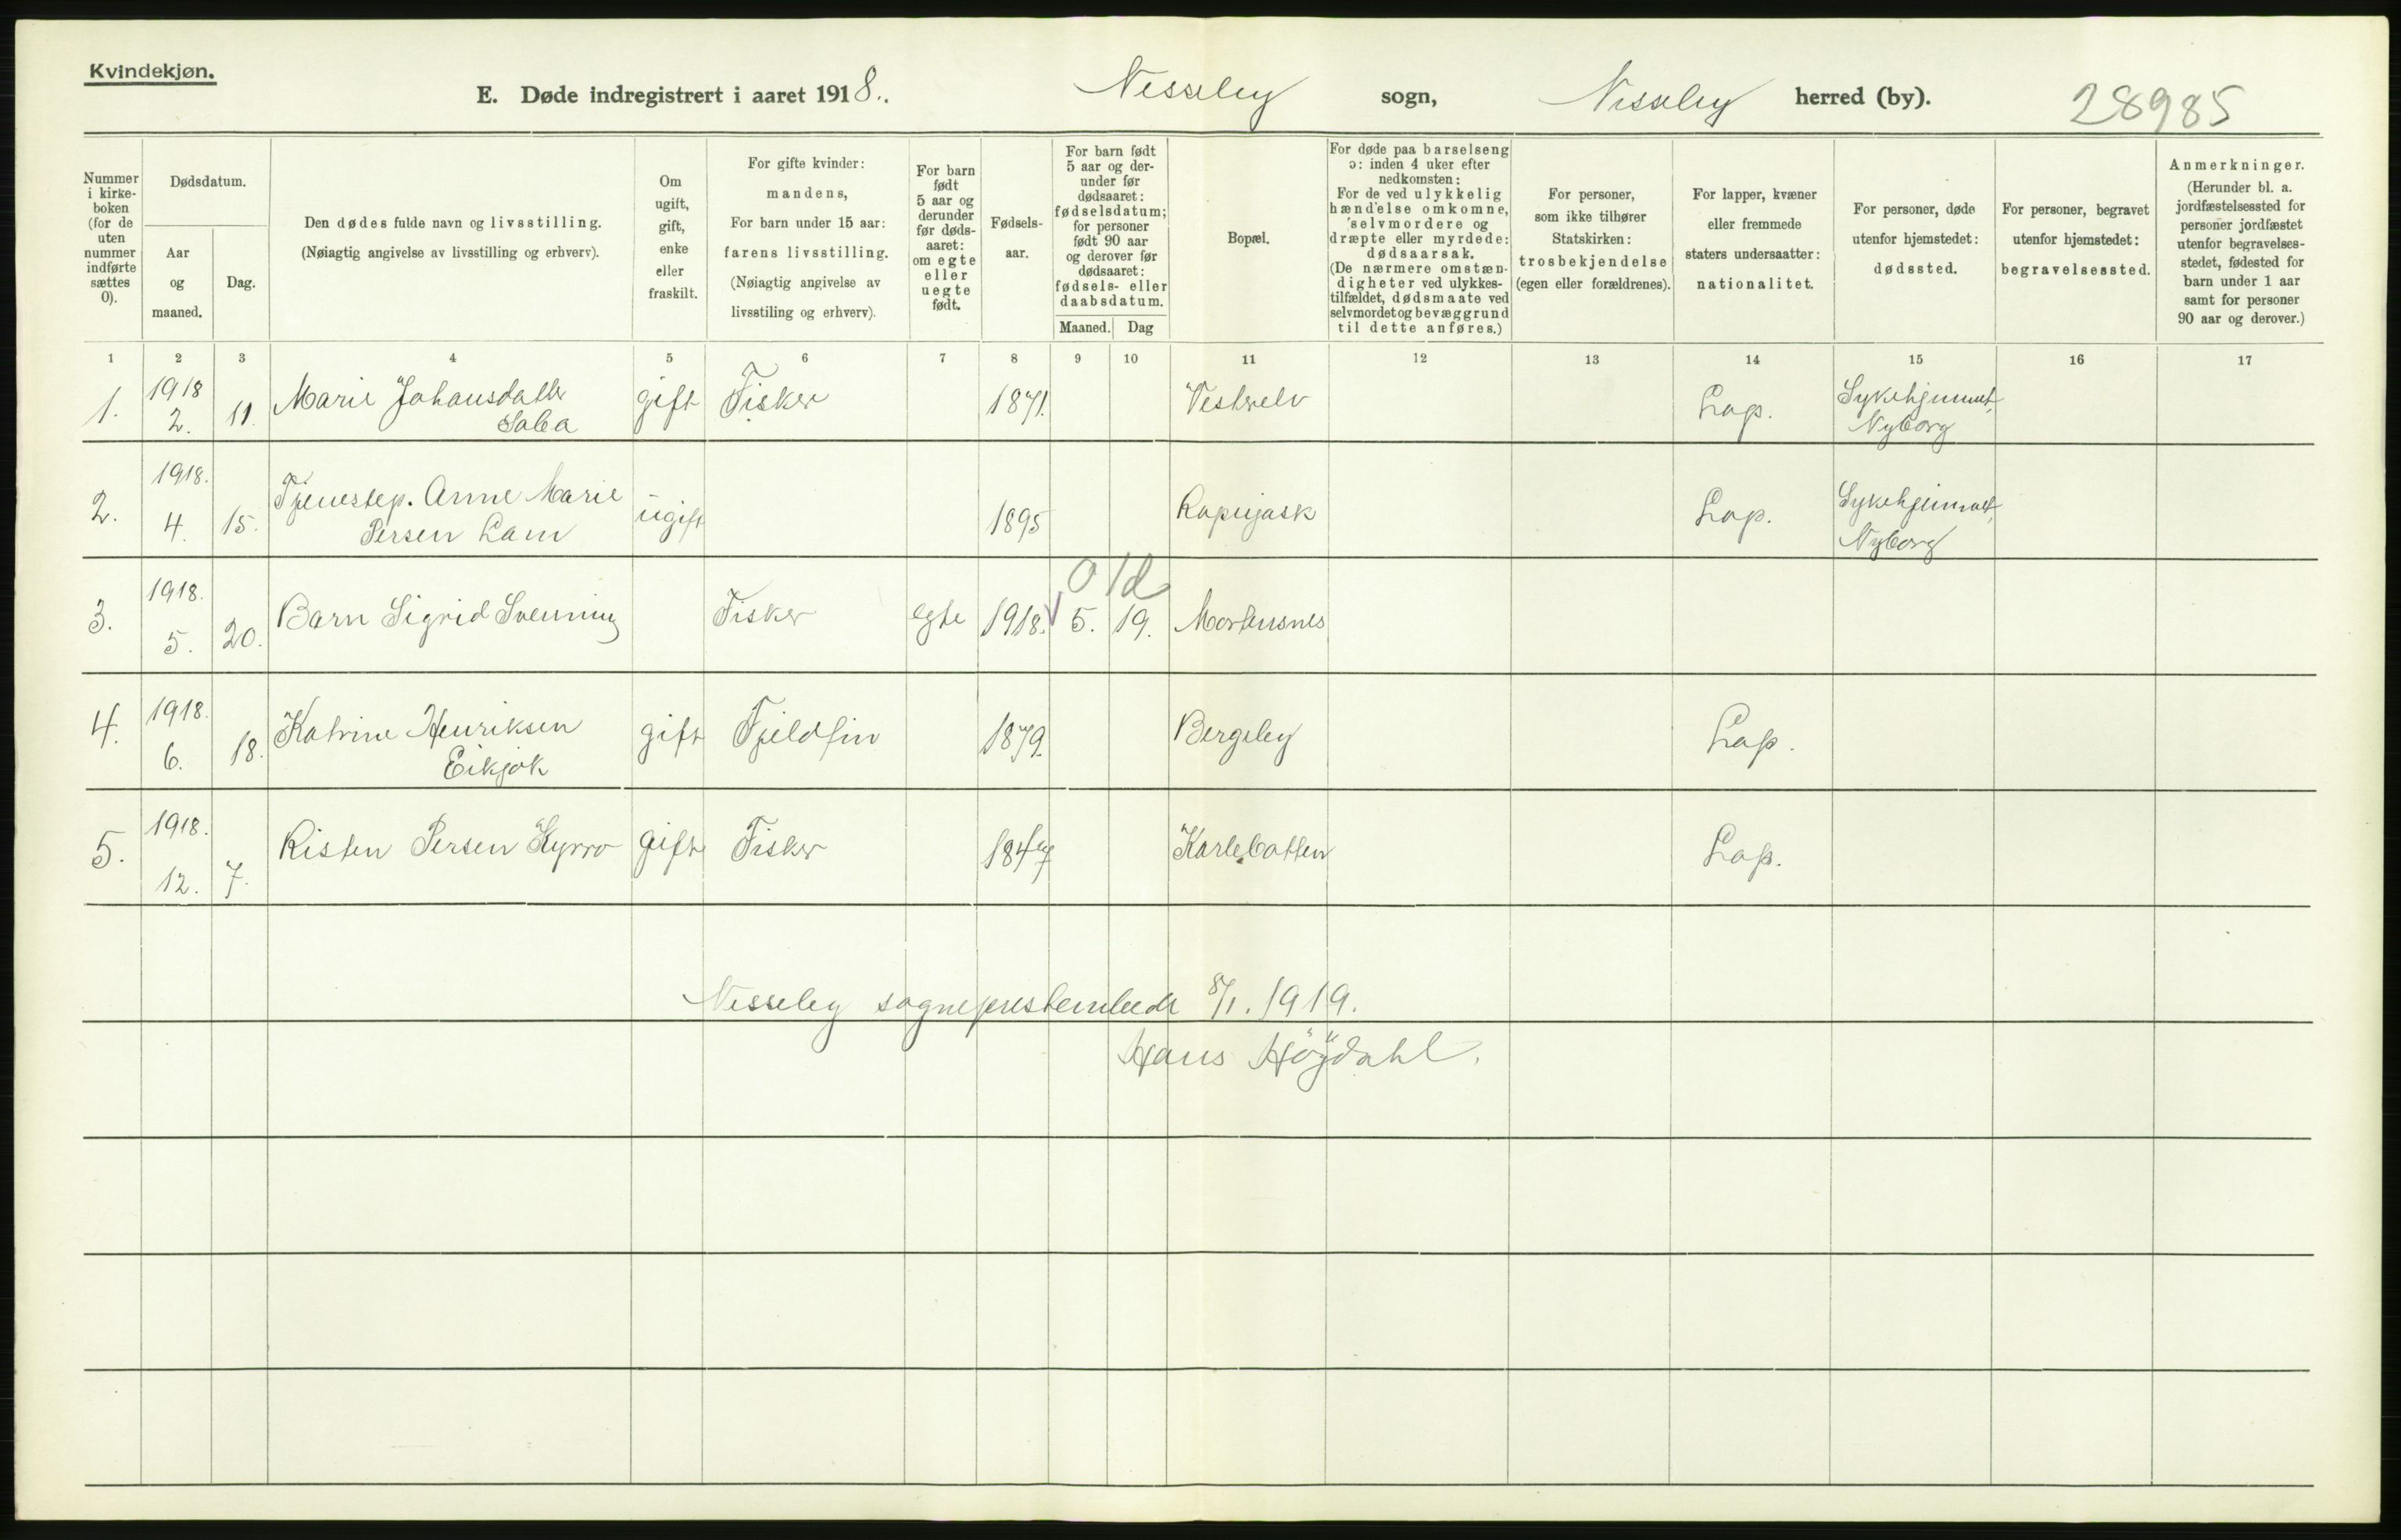 Kvindekjøn.
E. Døde indregistrert i aaret 1918.
Nesseby sogn, Nesseby herred (by).
28985
Nummer i kirkeboken (for de uten nummer indførte sættes 0).
Dødsdatum.
Aar og maaned.
Dag.
Den dødes fulde navn og livsstilling.
(Nøiagtig angivelse av livsstilling og erhverv).
Om ugift, gift, enke eller fraskilt.
For gifte kvinder:
mandens,
For barn under 15 aar:
farens livsstilling.
(Nøiagtig angivelse av livsstiling og erhverv).
For barn født 5 aar og derunder før dødsaaret: om egte eller uegte født.
Fødselsaar.
For barn født 5 aar og derunder før dødsaaret: fødselsdatum; for personer født 90 aar og derover før dødsaaret: fødsels- eller daabsdatum.
Maaned. Dag
Bopæl.
For døde paa barselseng ɔ: inden 4 uker efter nedkomsten:
For de ved ulykkelig hændelse omkomne, selvmordere og dræpte eller myrdede: dødsaarsak.
(De nærmere omstændigheter ved ulykkestilfældet, dødsmaate ved selvmordet og bevæggrund til dette anføres.)
For personer, som ikke tilhører Statskirken: trosbekjendelse (egen eller forældrenes).
For lapper, kvæner eller fremmede staters undersaatter: nationalitet.
For personer, døde utenfor hjemstedet: dødssted.
For personer, begravet utenfor hjemstedet: begravelsessted.
Anmerkninger.
(Herunder bl. a. jordfæstelsessted for personer jordfæstet utenfor begravelsesstedet, fødested for barn under 1 aar samt for personer 90 aar og derover.)
1 2 3 4 5 6 7 8 9 10 11 12 13 14 15 16 17
1. 1918 2. 11. Marie Johansdatter Saba gift Fisker 1871. Vesterelv Lap. Sykehjemmet, Nyborg
2. 1918. 4. 15. Tjenestep. Anne Marie Persen Lam ugift 1895 Lap. Sykehjemmet, Nyborg
0 1d
3. 1918. 5. 20. Barn Sigrid Svenning Fisker egte 1918. 5. 19. Mortensnes
4. 1918. 6. 18. Katrine Henriksen Eikjok gift Fjeldfin 1879. Bergeby Lap.
5. 1918. 12. 7. Risten Persen Kyrrø gift Fisker 1847 Karlebotten Lap.
Nesseby sogneprestembede 8/1. 1919.
Hans Høgdahl.